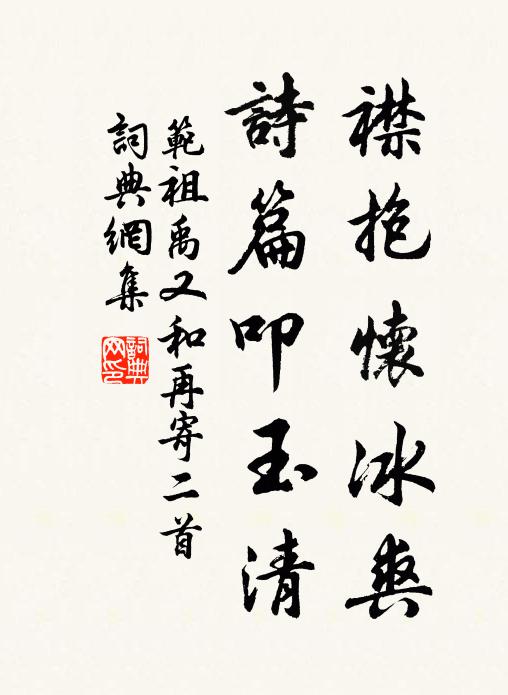 襟抱懷冰爽
詩篇叩玉清
範祖禹又和再寄二首
詞典網集
詞典網印